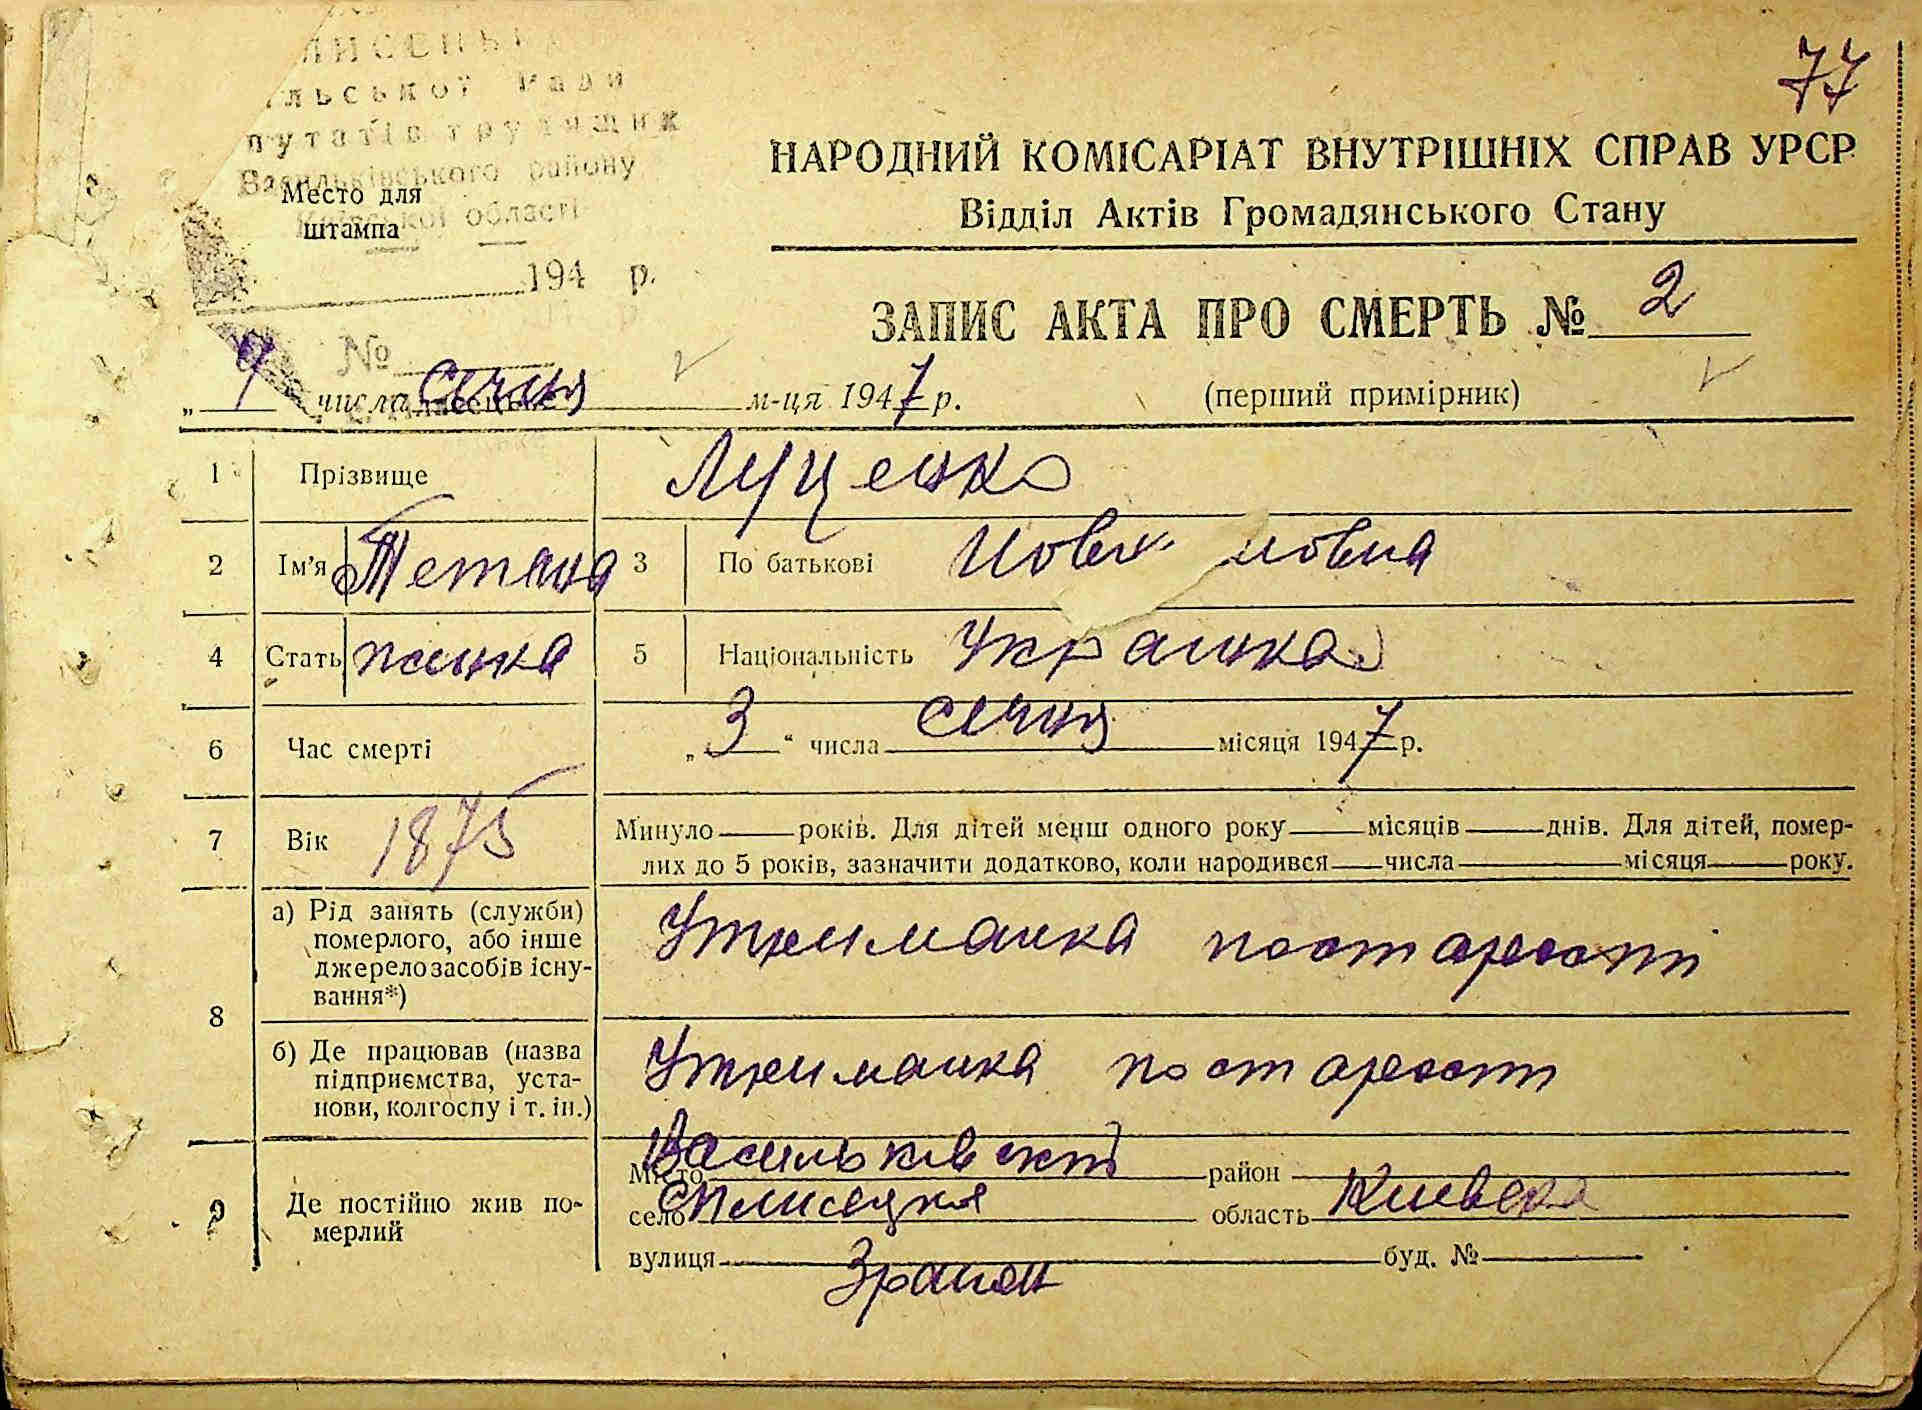 77
ЛИСЕНЬК
льської Ради
путатів трудящих
Васильківського району
Київської області
Место для
штампа
194 р.
№
НАРОДНИЙ КОМІСАРІАТ ВНУТРІШНІХ СПРАВ УРСР
Відділ Актів Громадянського Стану
ЗАПИС АКТА ПРО СМЕРТЬ № 2
„ 9 числа січня м-ця 1947 р. (перший примірник)
1 Прізвище Луценко
2 Ім'я Тетяна 3 По батькові мовна
4 Стать жінка 5 Національність Українка
6 Час смерті „ 3 “ числа січня місяця 1947 р.
7 Вік 1875 Минуло — років. Для дітей менш одного року — місяців — днів. Для дітей, помер-
лих до 5 років, зазначити додатково, коли народився — числа — місяця — року.
8 а) Рід занять (служби)
померлого, або інше
джерело засобів існу-
вання*)
Утриманка по старості
б) Де працював (назва
підприємства, уста-
нови, колгоспу і т. ін.)
Утриманка по старості
9 Де постійно жив по-
мерлий
Місто Васильківськ район
село Плисецке область Киевска
вулиця буд. №